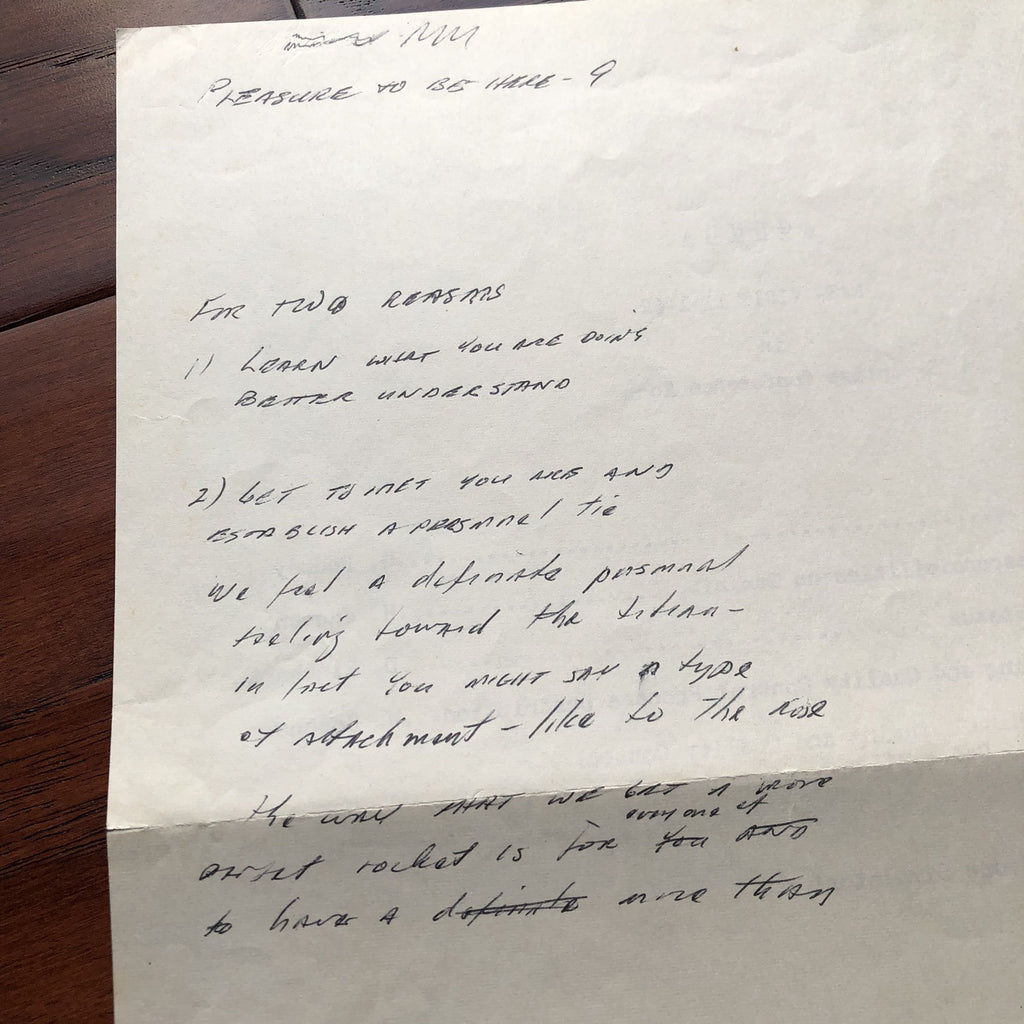 PLEASURE TO BE HERE - 9
FOR TWO REASONS
1) LEARN WHAT YOU ARE DOING
BETTER UNDERSTAND
2) GET TO MET YOU AND
ESTABLISH A PERSONAL TIE
We feel A definate personal
feeling toward the titan -
In fact YOU MIGHT SAY A type
of attachment - like to the nose
the way THAT WE GET A more
everyone of
perfect rocket is for You AND
to have A definate more than